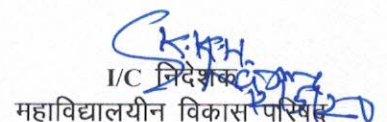 I/C निदेशक
महाविद्यालयीन विकास परिषद